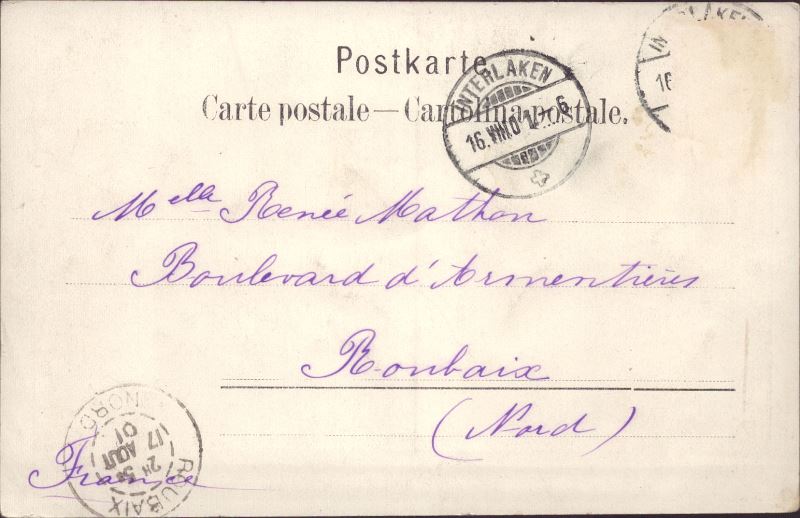 Postkarte
Carte postale — Cartolina postale.
INTERLAKEN
16.VIII.01
INTERLAKEN
16.
Melle Renée Mathon
Boulevard d'Armentières
Roubaix
(Nord)
France
ROUBAIX
NORD
17
AOUT
01